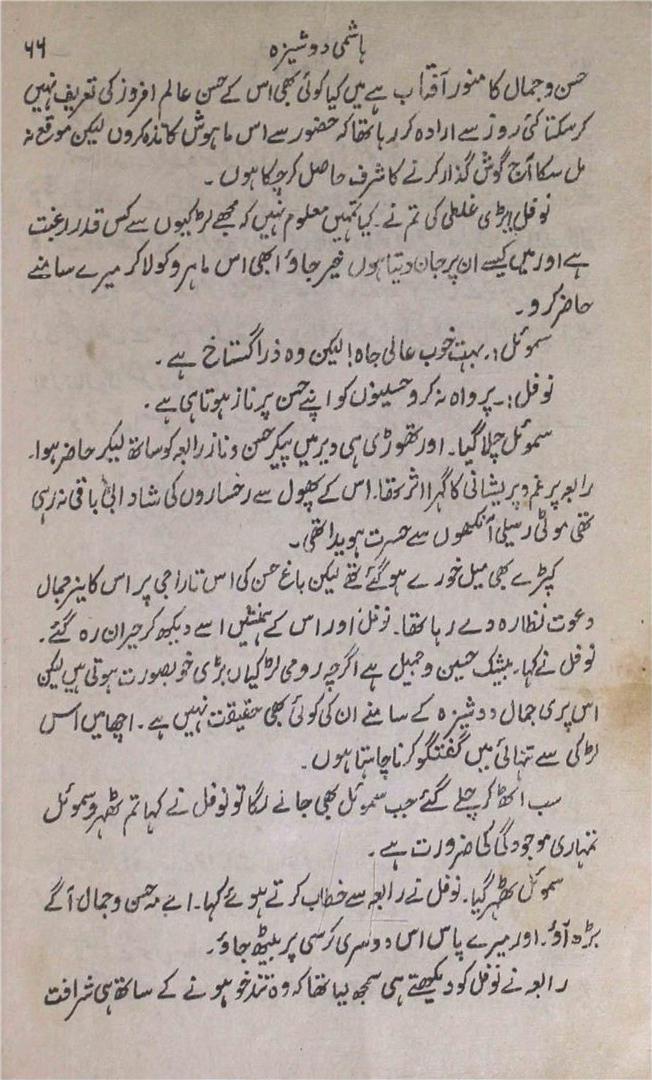 ۶۶
ہاشمی دوشیزہ
حسن و جمال کا منور آفتاب ہے میں کیا کوئی بھی اس کے حسن عالم افروز کی تعریف نہیں
کرسکتا کئی روز سے ارادہ کر رہا تھا کہ حضور سے اس ماہوش کا تذکرہ کروں لیکن موقع نہ
مل سکا آج گوش گذار کرنے کا شرف حاصل کر چکا ہوں ۔
نوفل بڑی غلطی کی تم نے۔ کیا تمہیں معلوم نہیں کہ مجھے لڑکیوں سے کس قدر رغبت
ہے اور میں کیسے ان پر جان دیتا ہوں خیر جاؤ ابھی اس ماہرو کو لا کر میرے سامنے
حاضر کرو ۔
سموئل :۔ بہت خوب عالی جاہ! لیکن وہ ذرا گستاخ ہے ۔
نوفل :۔ پرواہ نہ کرو حسینوں کو اپنے حسن پر ناز ہوتا ہی ہے ۔
سموئل چلا گیا۔ اور تھوڑی ہی دیر میں پیکر حسن و ناز رابعہ کو ساتھ لیکر حاضر ہوا۔
رابعہ پر غم و پریشانی کا گہرا اثر تھا۔ اس کے پھول سے رخساروں کی شادابی باقی نہ رہی
تھی موٹی رسیلی آنکھوں سے حسرت ہویدا تھی ۔
کپڑے بھی میل خورے ہو گئے تھے لیکن باغ حسن کی اس تاراجی پر اس کا نیز جمال
دعوت نظارہ دے رہا تھا۔ نوفل اور اس کے ہمنشیں اسے دیکھ کر حیران رہ گئے ۔
نوفل نے کہا۔ بیشک حسین و جمیل ہے اگرچہ رومی لڑکیاں بڑی خوبصورت ہوتی ہیں لیکن
اس پری جمال دوشیزہ کے سامنے ان کی کوئی بھی حقیقت نہیں ہے ۔ اچھا میں اس
لڑکی سے تنہائی میں گفتگو کرنا چاہتا ہوں ۔
سب اٹھ کر چلے گئے جب سموئل بھی جانے لگا تو نوفل نے کہا تم ٹھہرو سموئل
تمہاری موجودگی کی ضرورت ہے ۔
سموئل ٹھہر گیا۔ نوفل نے رابعہ سے خطاب کرتے ہوئے کہا۔ اے مہ حسن و جمال آگے
بڑھ آؤ۔ اور میرے پاس اس دوسری کرسی پر بیٹھ جاؤ ۔
رابعہ نے نوفل کو دیکھتے ہی سمجھ لیا تھا کہ وہ تند خو ہونے کے ساتھ ہی شرافت